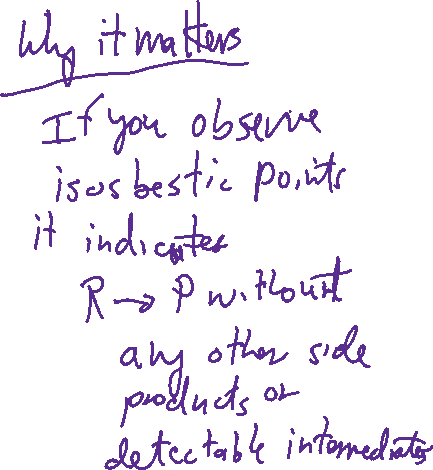 Why it matters
If you observe
isosbestic points
it indicates
R → P without
any other side
products or
detectable intermediates